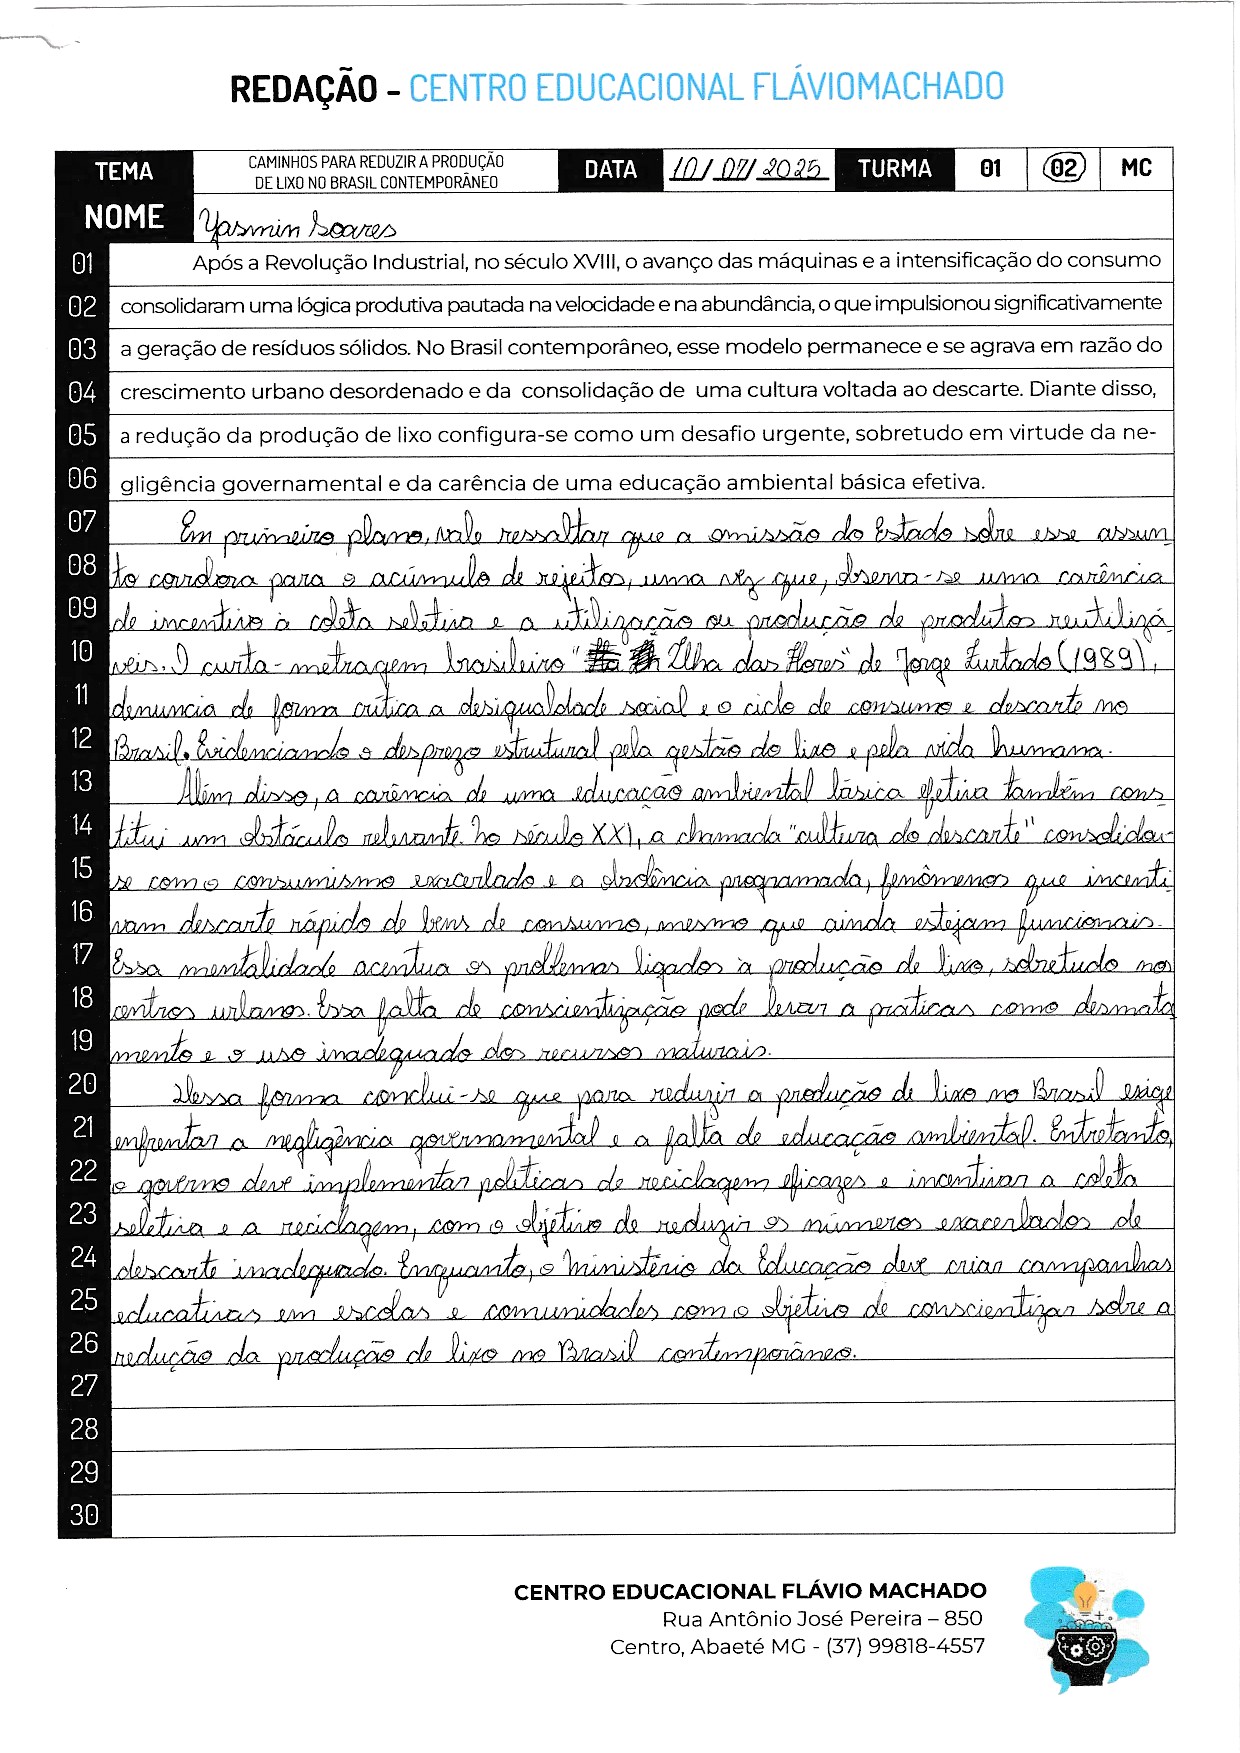 REDAÇÃO - CENTRO EDUCACIONAL FLÁVIOMACHADO
TEMA
CAMINHOS PARA REDUZIR A PRODUÇÃO
DE LIXO NO BRASIL CONTEMPORÂNEO
DATA 10/07/2025 TURMA 01 02 MC
NOME Yasmin Soares
01 Após a Revolução Industrial, no século XVIII, o avanço das máquinas e a intensificação do consumo
02 consolidaram uma lógica produtiva pautada na velocidade e na abundância, o que impulsionou significativamente
03 a geração de resíduos sólidos. No Brasil contemporâneo, esse modelo permanece e se agrava em razão do
04 crescimento urbano desordenado e da consolidação de uma cultura voltada ao descarte. Diante disso,
05 a redução da produção de lixo configura-se como um desafio urgente, sobretudo em virtude da ne-
06 gligência governamental e da carência de uma educação ambiental básica efetiva.
07 Em primeiro plano, vale ressaltar que a omissão do Estado sobre esse assun
08 to corrobora para o acúmulo de rejeitos, uma vez que, observa-se uma carência
09 de incentivo à coleta seletiva e a utilização ou produção de produtos reutilizá
10 veis. O curta-metragem brasileiro " Ilha das Flores" de Jorge Furtado (1989),
11 denuncia de forma crítica a desigualdade social e o ciclo de consumo e descarte no
12 Brasil. Evidenciando o desprezo estrutural pela gestão do lixo e pela vida humana.
13 Além disso, a carência de uma educação ambiental básica efetiva também cons_
14 titui um obstáculo relevante. No século XXI, a chamada "cultura do descarte" consolidou-
15 se com o consumismo exacerbado e a obsolência programada, fenômenos que incenti
16 vam descarte rápido de bens de consumo, mesmo que ainda estejam funcionais.
17 Essa mentalidade acentua os problemas ligados à produção de lixo, sobretudo nos
18 centros urbanos. Essa falta de conscientização pode levar a práticas como desmata
19 mento e o uso inadequado dos recursos naturais.
20 Dessa forma conclui-se que para reduzir a produção de lixo no Brasil exige
21 enfrentar a negligência governamental e a falta de educação ambiental. Entretanto,
22 o governo deve implementar políticas de reciclagem eficazes e incentivar a coleta
23 seletiva e a reciclagem, com o objetivo de reduzir os números exacerbados de
24 descarte inadequado. Enquanto, o Ministério da Educação deve criar campanhas
25 educativas em escolas e comunidades com o objetivo de conscientizar sobre a
26 redução da produção de lixo no Brasil contemporâneo.
27
28
29
30
CENTRO EDUCACIONAL FLÁVIO MACHADO
Rua Antônio José Pereira – 850
Centro, Abaeté MG - (37) 99818-4557